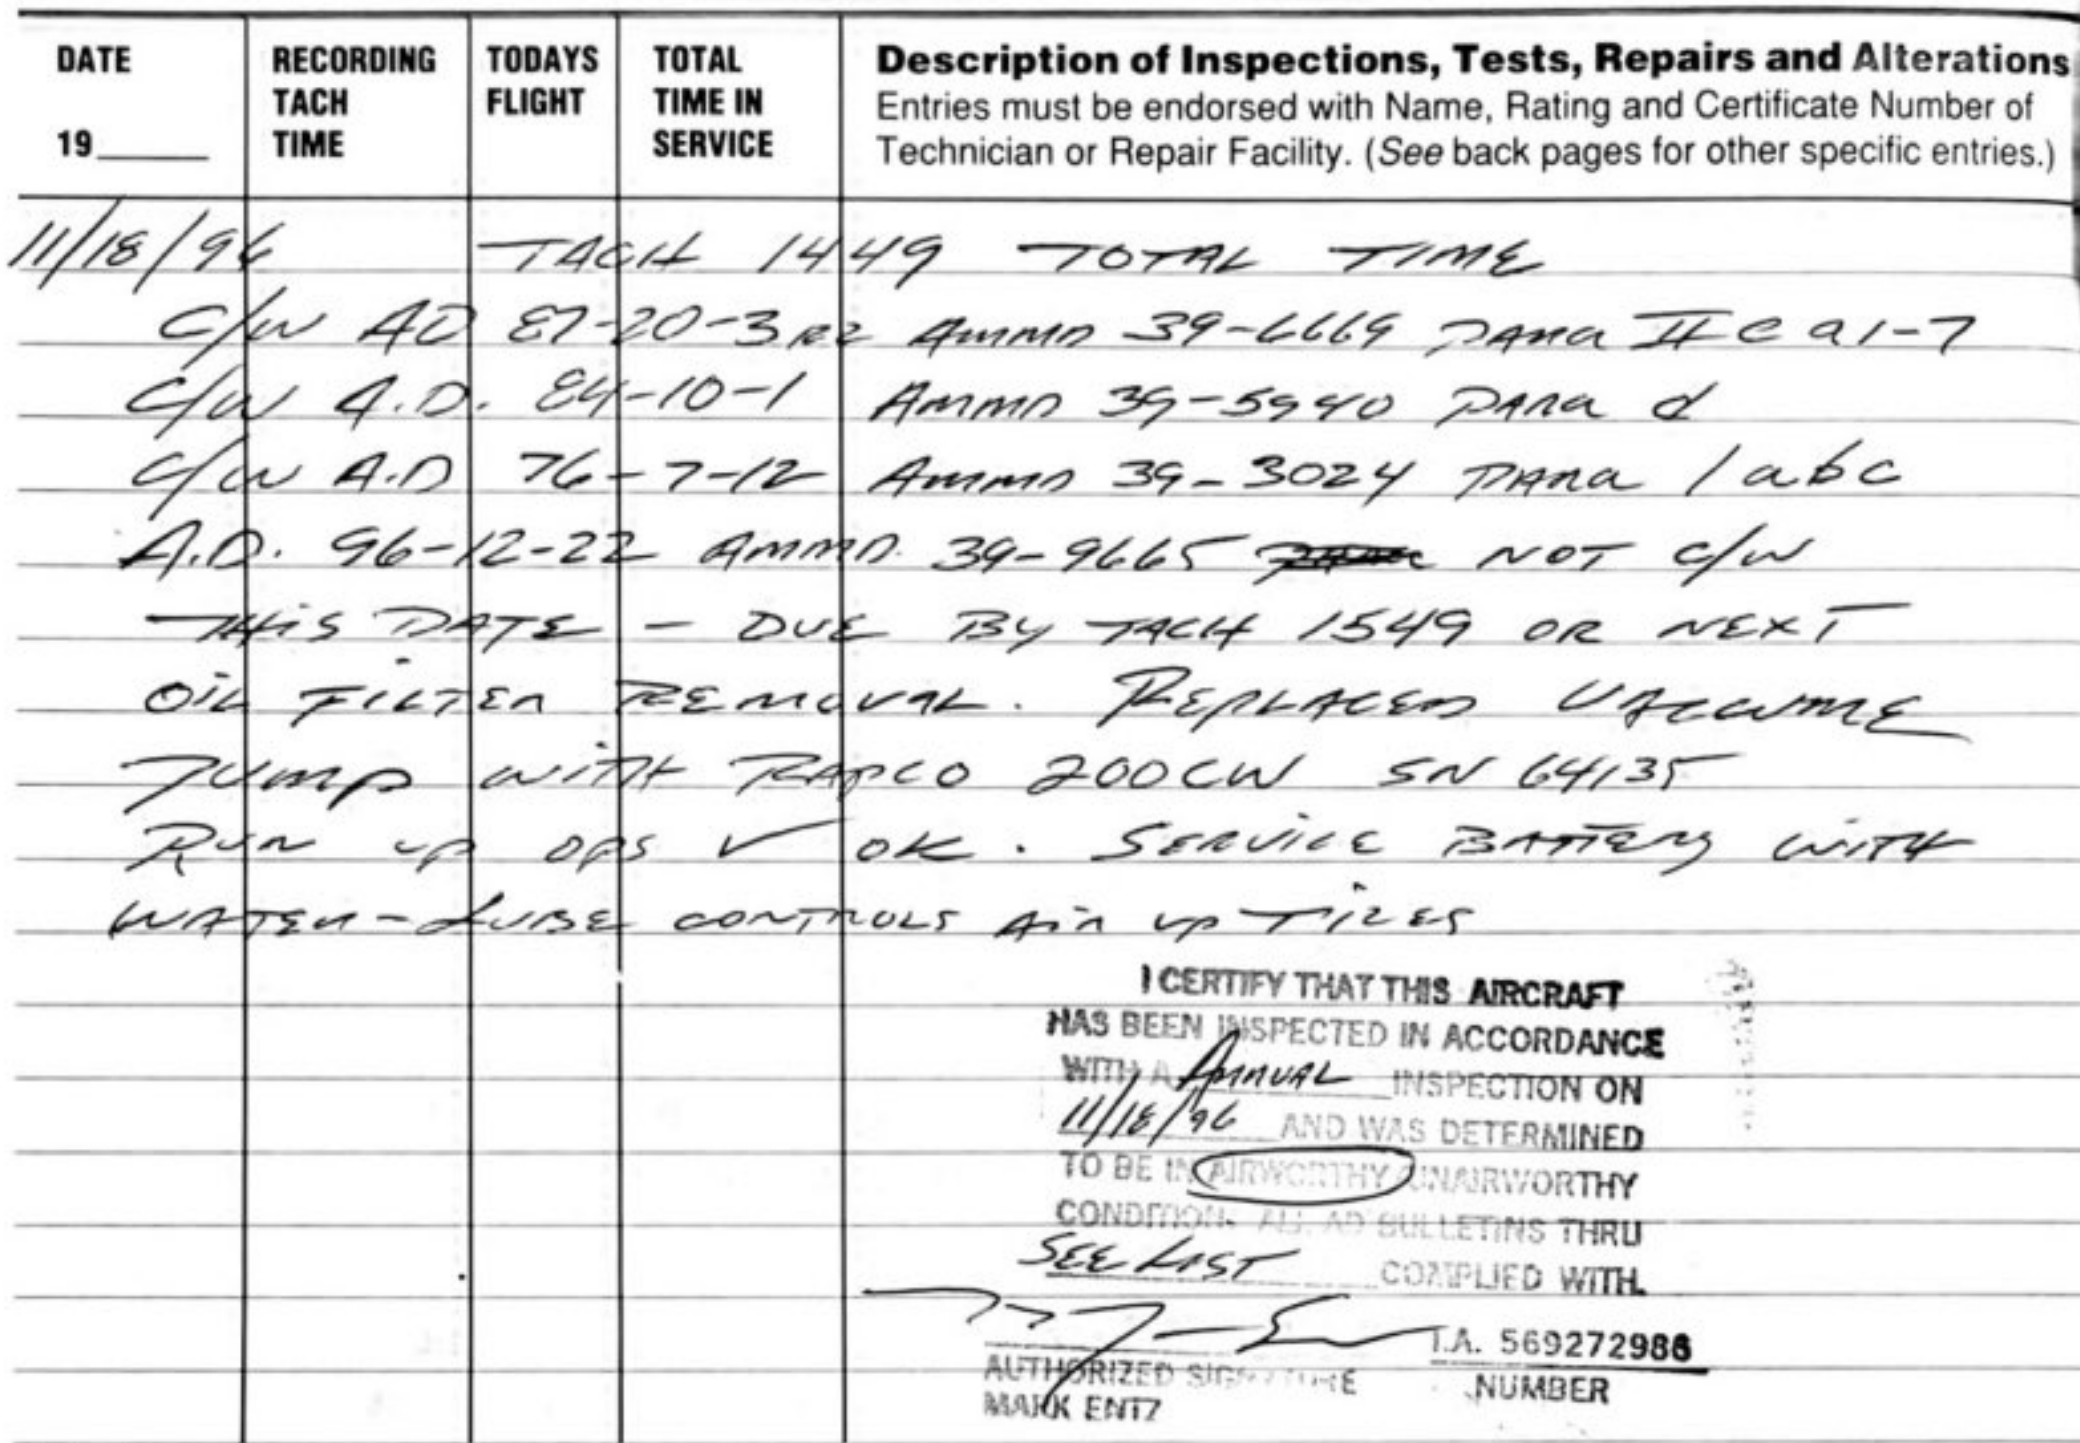 DATE RECORDING TODAYS TOTAL Description of Inspections, Tests, Repairs and Alterations
TACH FLIGHT TIME IN Entries must be endorsed with Name, Rating and Certificate Number of
19____ TIME SERVICE Technician or Repair Facility. (See back pages for other specific entries.)
11/18/96 TACH 1449 TOTAL TIME
C/W AD 87-20-3 R2 AMMD 39-6669 PARA II C a 1-7
C/W A.D. 84-10-1 AMMD 39-5940 PARA d
C/W A.D 76-7-12 AMMD 39-3024 PARA 1 abc
A.D. 96-12-22 AMMD. 39-9665 NOT C/W
THIS DATE - DUE BY TACH 1549 OR NEXT
OIL FILTER REMOVAL. REPLACED
PUMP WITH RAPCO 200CW SN 64135
RUN UP OPS ✓ OK. SERVICE BATTERY WITH
WATER - LUBE CONTROLS AIR UP TIRES
I CERTIFY THAT THIS AIRCRAFT
HAS BEEN INSPECTED IN ACCORDANCE
WITH A ANNUAL INSPECTION ON
11/18/96 AND WAS DETERMINED
TO BE IN AIRWORTHY/UNAIRWORTHY
CONDITION. ALL AD BULLETINS THRU
SEE LIST COMPLIED WITH.
I.A. 569272986
AUTHORIZED SIGNATURE NUMBER
MARK ENTZ